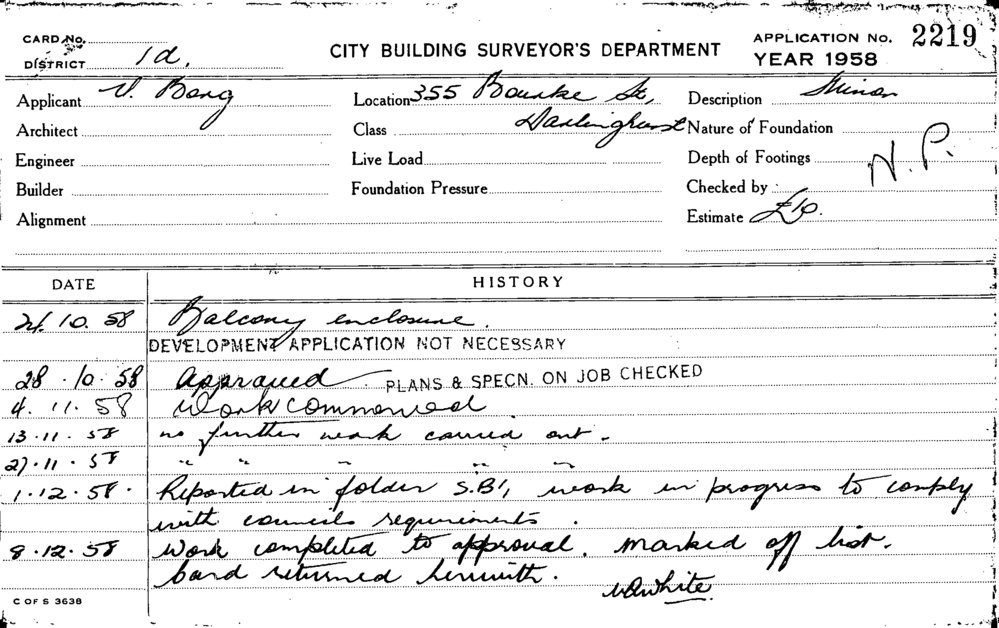 CARD No.
DISTRICT 1d.
CITY BUILDING SURVEYOR'S DEPARTMENT
APPLICATION No. 2219
YEAR 1958
Applicant V. Bong
Location 355 Bourke St,
Darlinghurst
Description Minor
Architect
Class
Nature of Foundation
Engineer
Live Load
Depth of Footings N.P.
Builder
Foundation Pressure
Checked by
Alignment
Estimate £10.
DATE HISTORY
24.10.58 Balcony enclosure.
DEVELOPMENT APPLICATION NOT NECESSARY
28.10.58 Approved PLANS & SPECN. ON JOB CHECKED
4.11.58 Work commenced
13.11.58 no further work carried out.
27.11.58 " " " " "
1.12.58. Reported in folder S.B1, work in progress to comply
with councils requirements.
8.12.58 Work completed to approval. marked off list.
Card returned herewith.
White
C OF S 3638